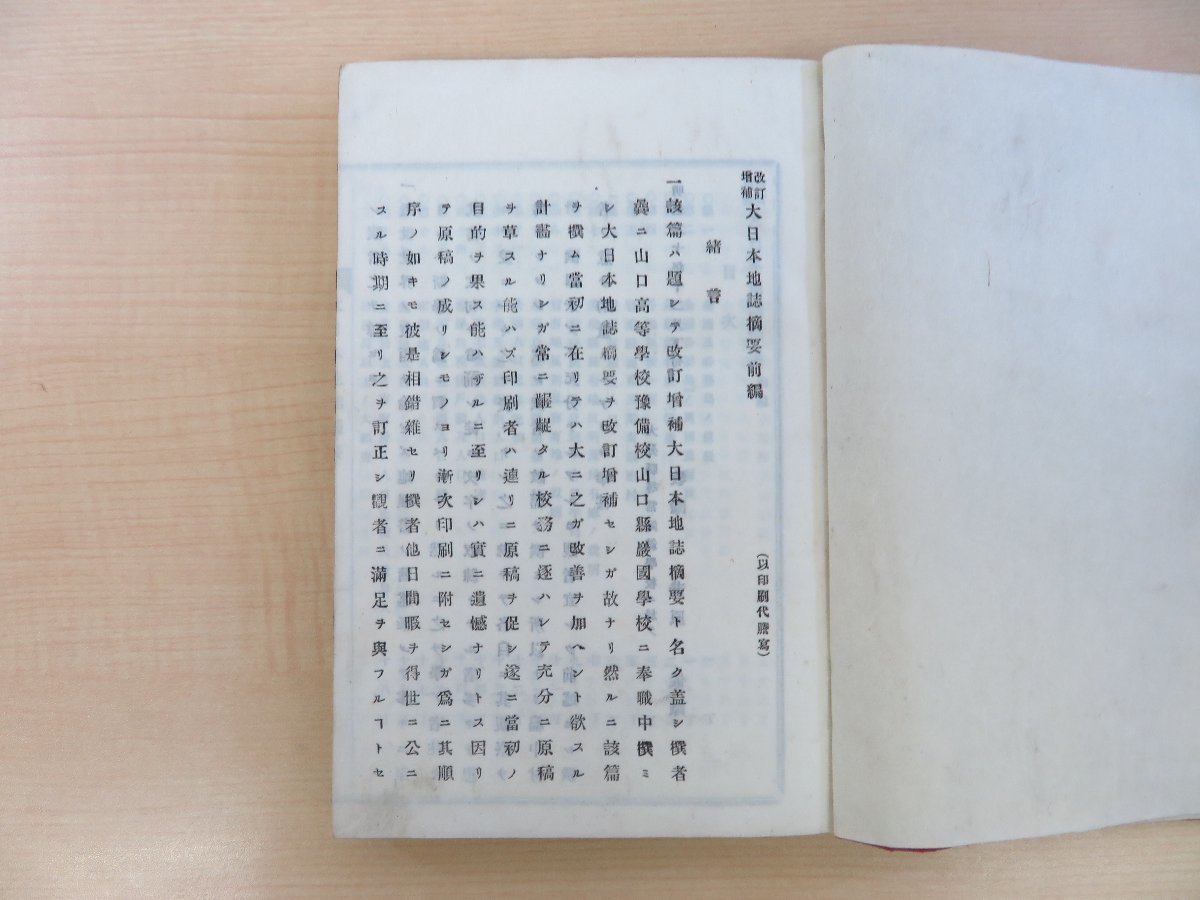 改訂增補大日本地誌摘要前編
(以印刷代謄寫)
緒言
一該篇ハ題シテ改訂增補大日本地誌摘要ト名ク盖シ撰者
曩ニ山口高等學校豫備校山口縣巖國學校ニ奉職中撰ミ
シ大日本地誌摘要ヲ改訂增補セシガ故ナリ然ルニ該篇
ヲ撰ム當初ニ在リテハ大ニ之ガ改善ヲ加ヘント欲スル
計畵ナリシガ常ニ齷齪タル校務ニ逐ハレテ充分ニ原稿
ヲ草スル能ハズ印刷者ハ連リニ原稿ヲ促シ遂ニ當初ノ
目的ヲ果ス能ハザルニ至リシハ實ニ遺憾ナリトス因リ
テ原稿ノ成リシモノヨリ漸次印刷ニ附セシガ爲ニ其順
序ノ如キモ彼是相錯雜セリ撰者他日間暇ヲ得世ニ公ニ
スル時期ニ至リ之ヲ訂正シ觀者ニ滿足ヲ與フルヿトセ